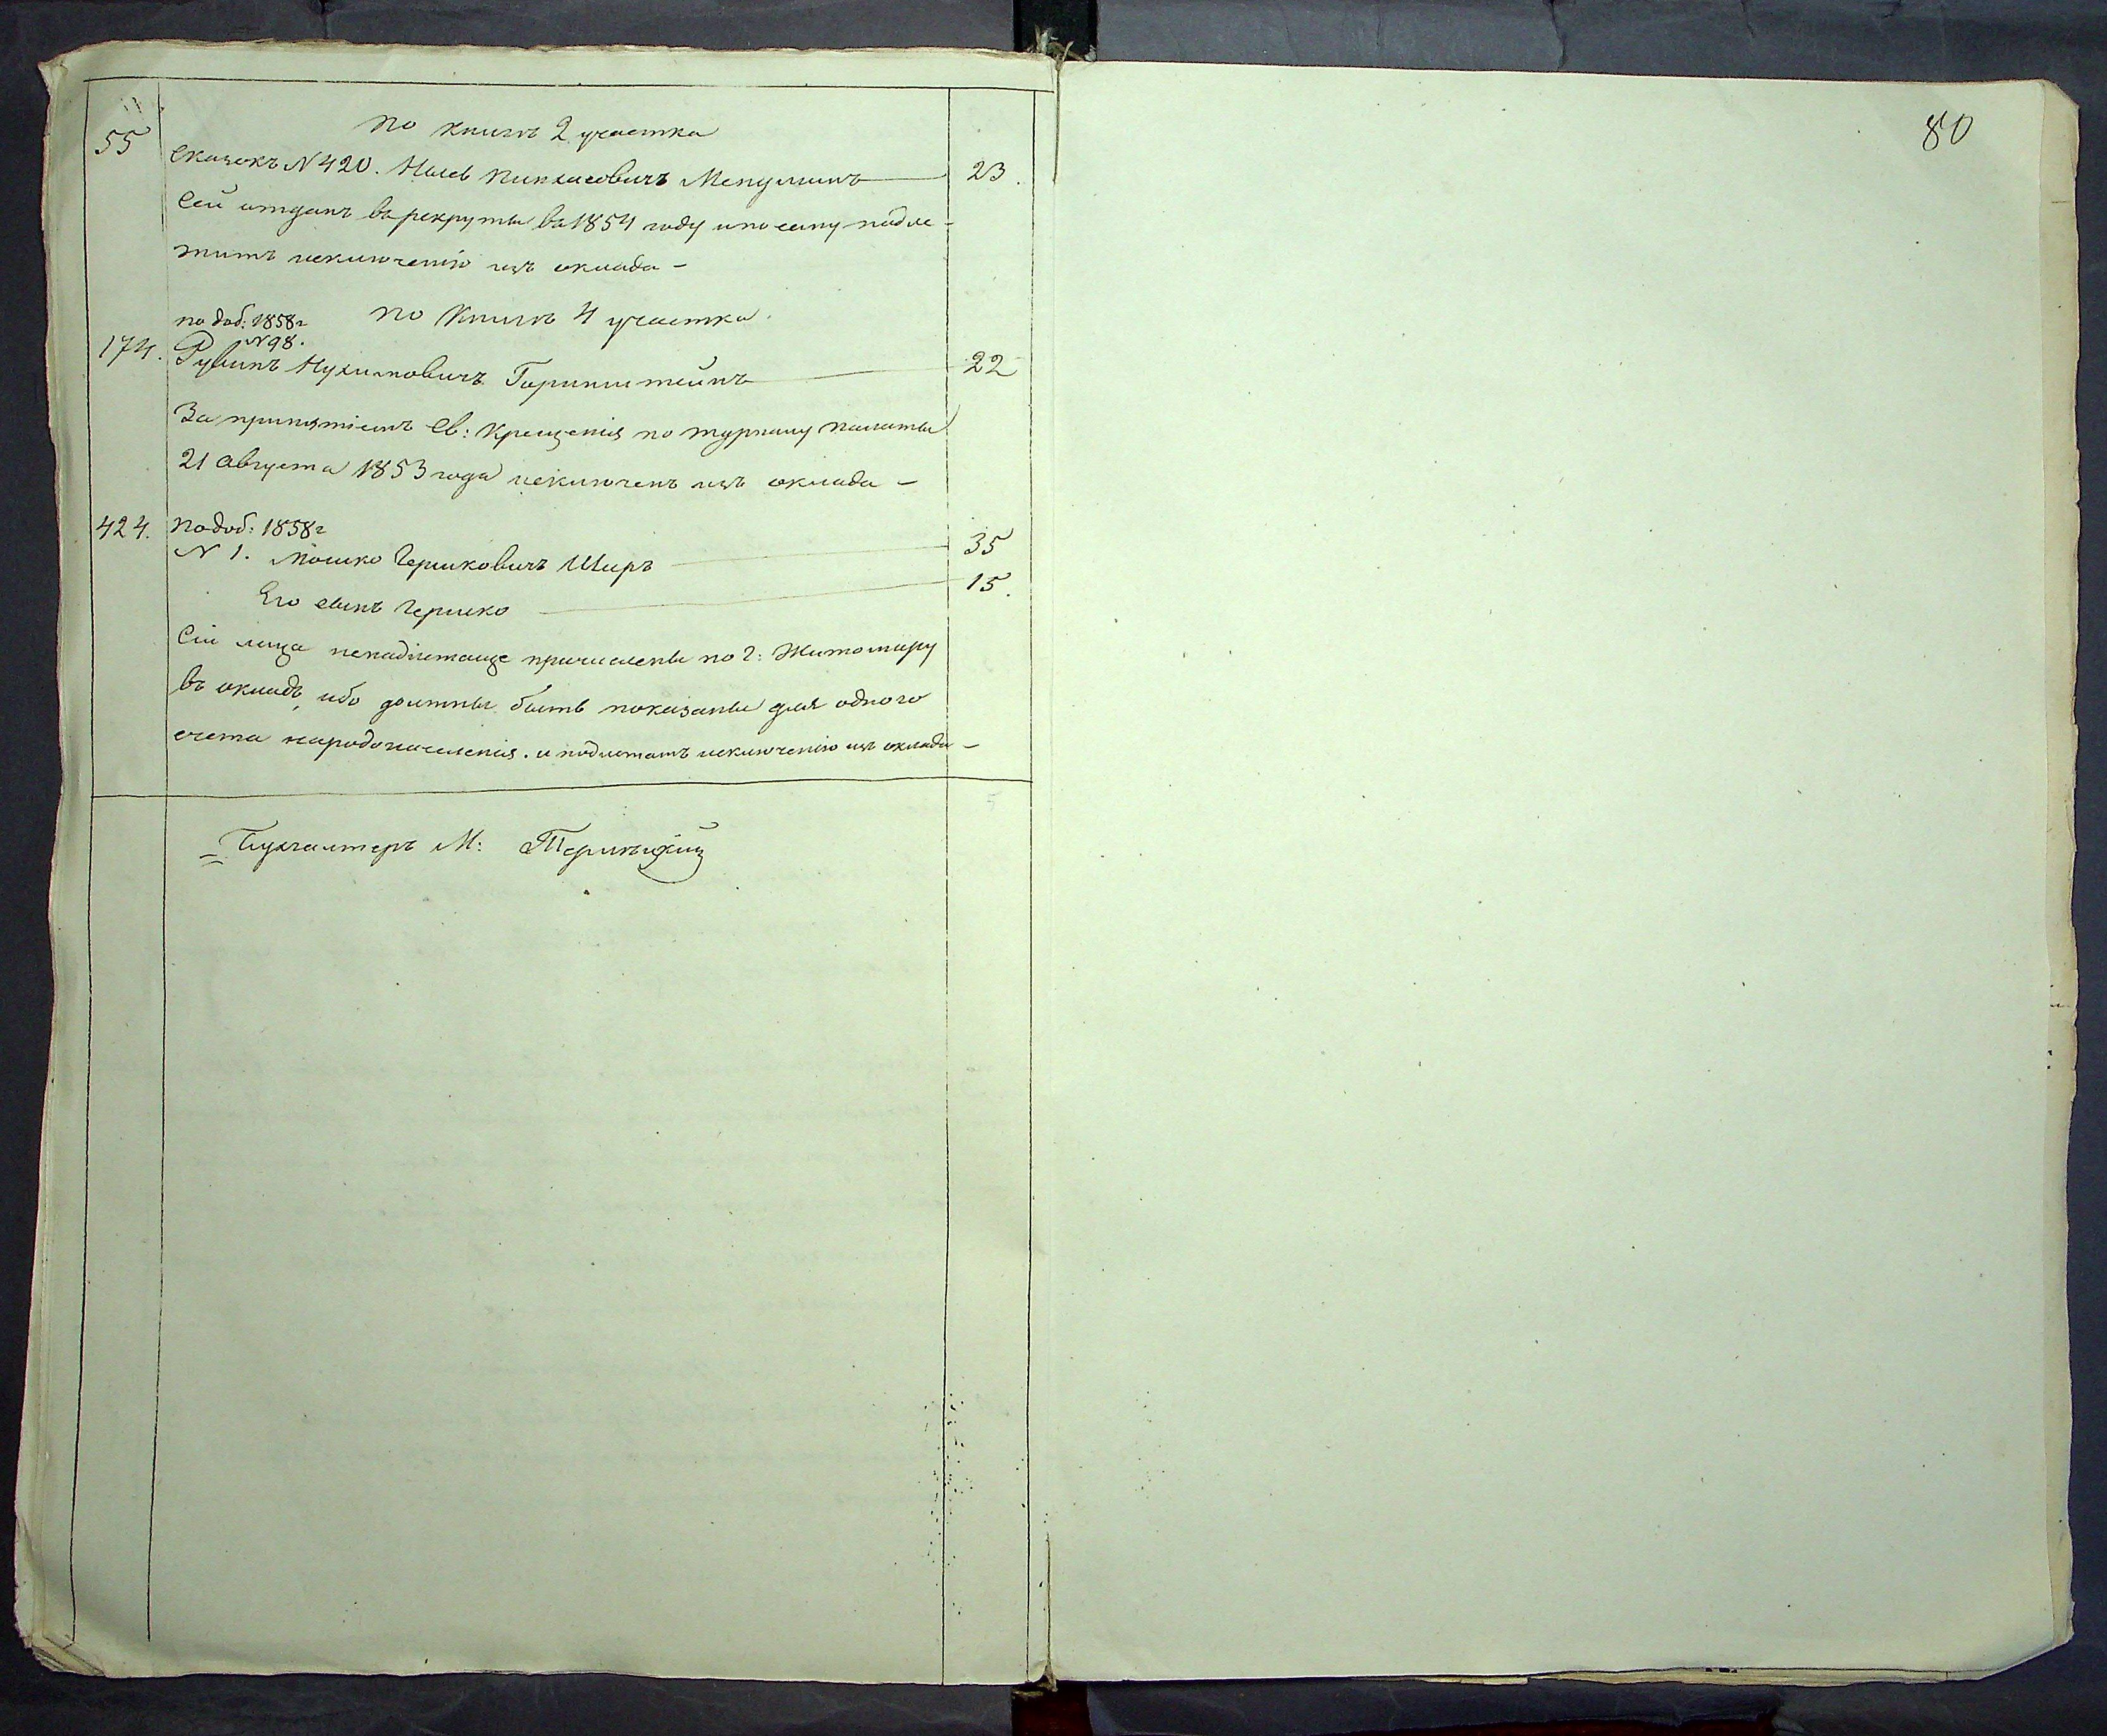 80
по книгѣ 2 участка
55 сказокъ N 420. Пинхасовичъ 23.
Сей отданъ въ рекруты въ 1854 году и по сему подле-
житъ исключенію изъ оклада —
по доб: 1858 г по Книгѣ 4 участка.
N 98.
174. Рувинъ Нухимовичъ Горинштейнъ 22
За принятіемъ Св: Крещенія по журналу палаты
21 Августа 1853 года исключенъ изъ оклада —
424. по доб: 1858 г
N 1. Мошко Гершковичъ Ширъ 35
Его сынъ Гершко 15.
Сіи лица ненадлежаще причислены по г: Житомиру
въ окладъ, ибо должны быть показаны для одного
счета народонаселенія. и подлежатъ исключенію изъ оклада —
Бухгалтеръ М: